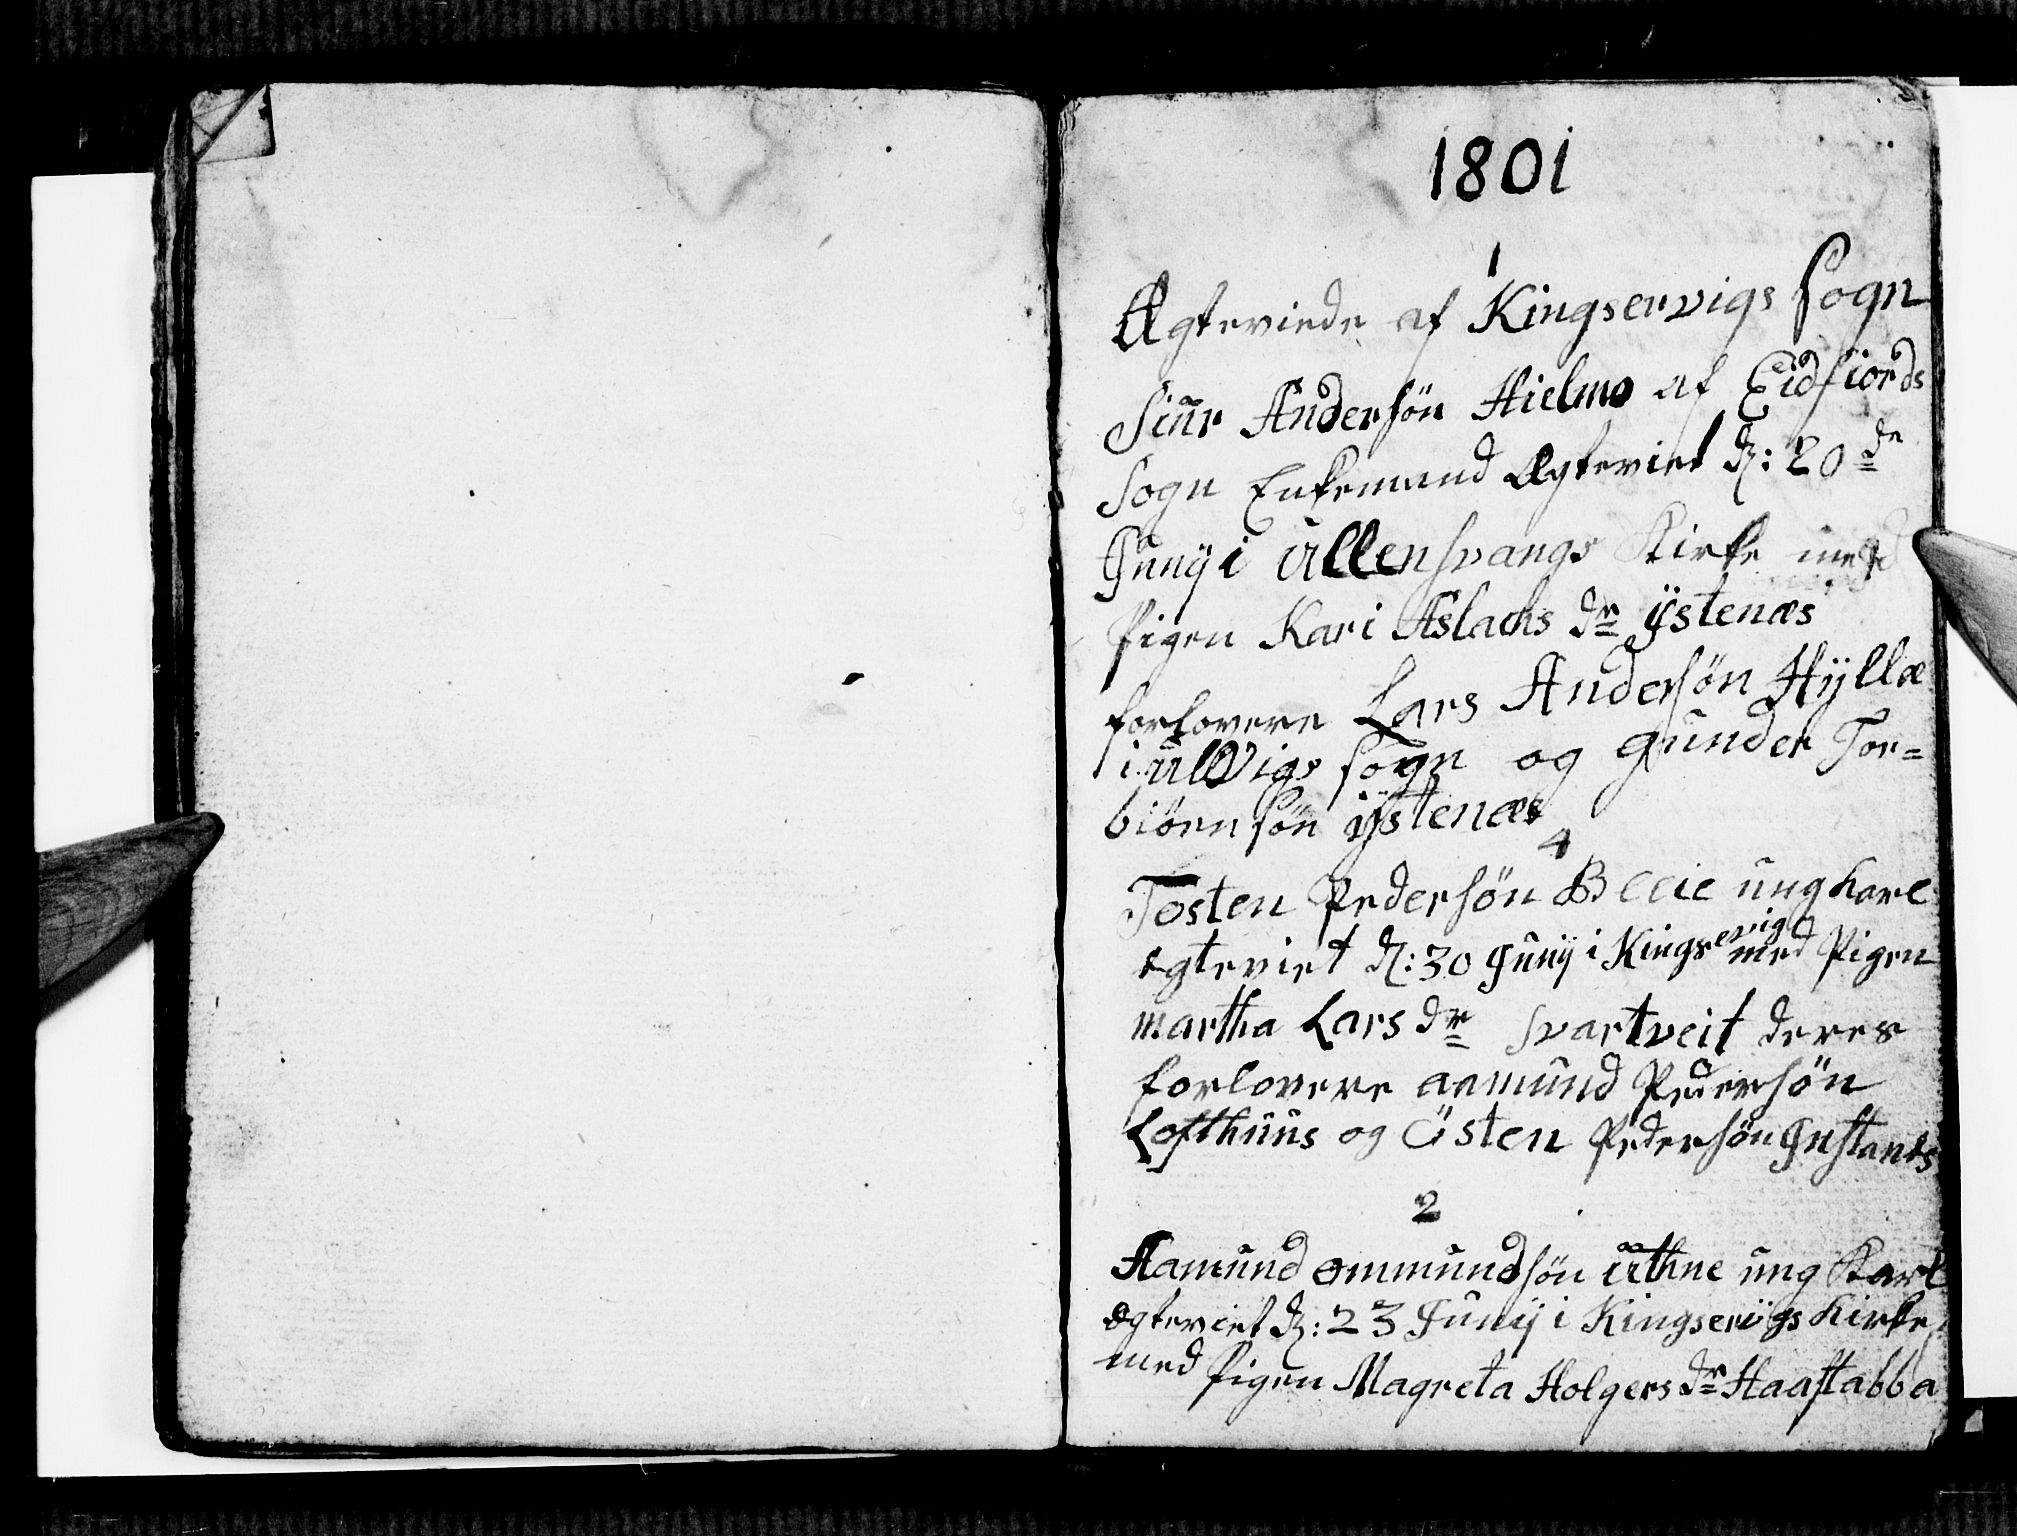 1801
1
Ægteviede af Kingservigs Sogn
Siur Andersøn Hielmo af Eidfiords
Sogn Enkemand Ægteviet d: 20de
Junÿ i Ullensvangs Kirke med
Pigen Kari Aslachs dr Ÿstenæs
forlovere Lars Andersøn Hÿllæ
i Ulvigs Sogn og Gunder Tor=
biörnsøn Ÿstenæs
4
Tosten Pedersøn Bleie ungkarl
egteviet d: 30 Junÿ i Kingservig med Pigen
Martha Lars dr Svartveit deres
forlovere Aamund Pedersøn
Lofthuus og Östen Pedersøn Instanæs
2
Aamund Ommundsøn Uthne ung Karl
Ægteviet d: 23 Junÿ i Kingservigs Kirke
med Pigen Magreta Holgers dr Haastabba